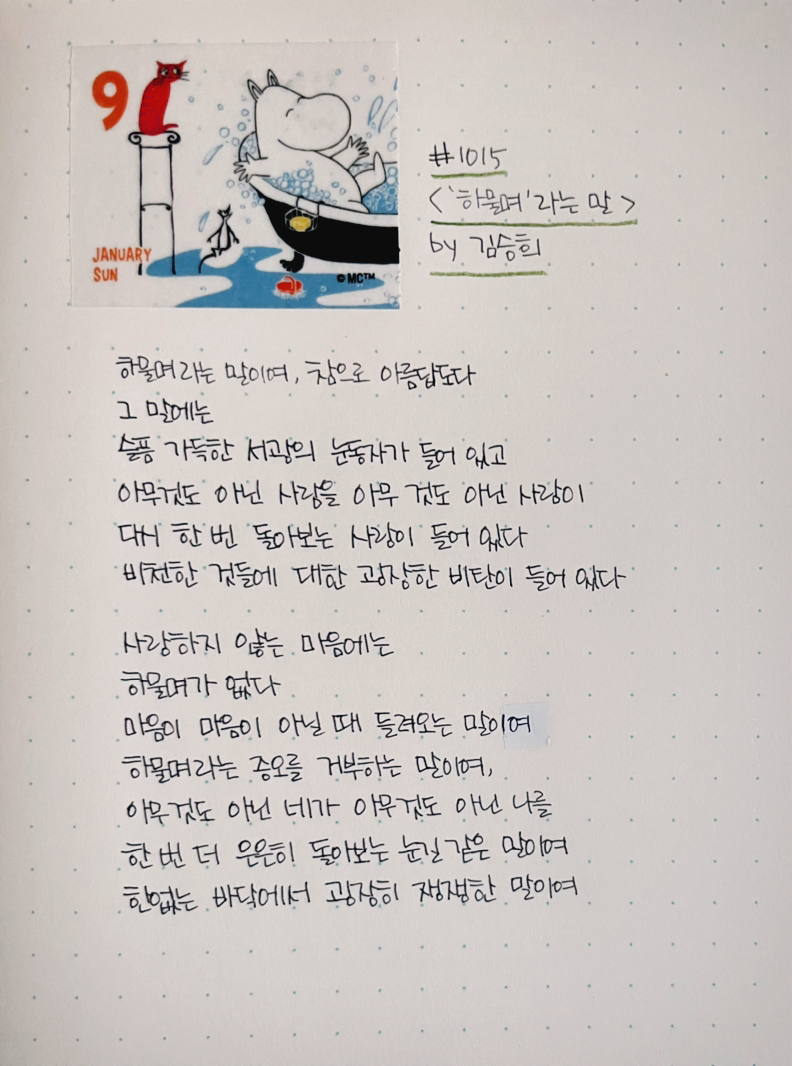 9
JANUARY
SUN
© MC™
#1015
<'하물며'라는 말>
by 김승희
하물며라는 말이여, 참으로 아름답도다
그 말에는
슬픔 가득한 서광의 눈동자가 들어 있고
아무것도 아닌 사람을 아무 것도 아닌 사람이
다시 한 번 돌아보는 사랑이 들어 있다
비천한 것들에 대한 굉장한 비탄이 들어 있다
사랑하지 않는 마음에는
하물며가 없다
마음이 마음이 아닐 때 들려오는 말이여
하물며라는 증오를 거부하는 말이여,
아무것도 아닌 네가 아무것도 아닌 나를
한 번 더 은은히 돌아보는 눈길 같은 말이여
한없는 바닥에서 굉장히 쟁쟁한 말이여